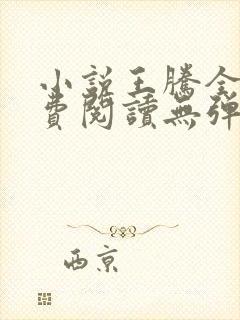 小説王騰全
費閱讀無彈
西京